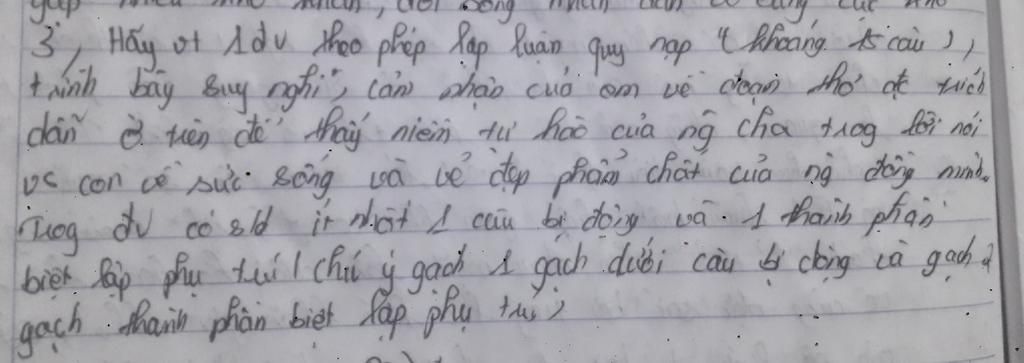 gặp nhiều khó khăn, đời sống nhân dân vô cùng cực khổ
3, Hãy vt 1 đv theo phép lập luận quy nạp ( khoảng 15 câu ),
trình bày suy nghĩ, cảm nhận của em về đoạn thơ đc trích
dẫn ở trên để thấy niềm tự hào của ng cha trog lời nói
vs con về sức sống và vẻ đẹp phẩm chất của ng đồng mình.
Trog đv có sd ít nhất 1 câu bị động và 1 thành phần
biệt lập phụ trú ( chú ý gạch 1 gạch dưới câu bị động và gạch 2
gạch thành phần biệt lập phụ trú )